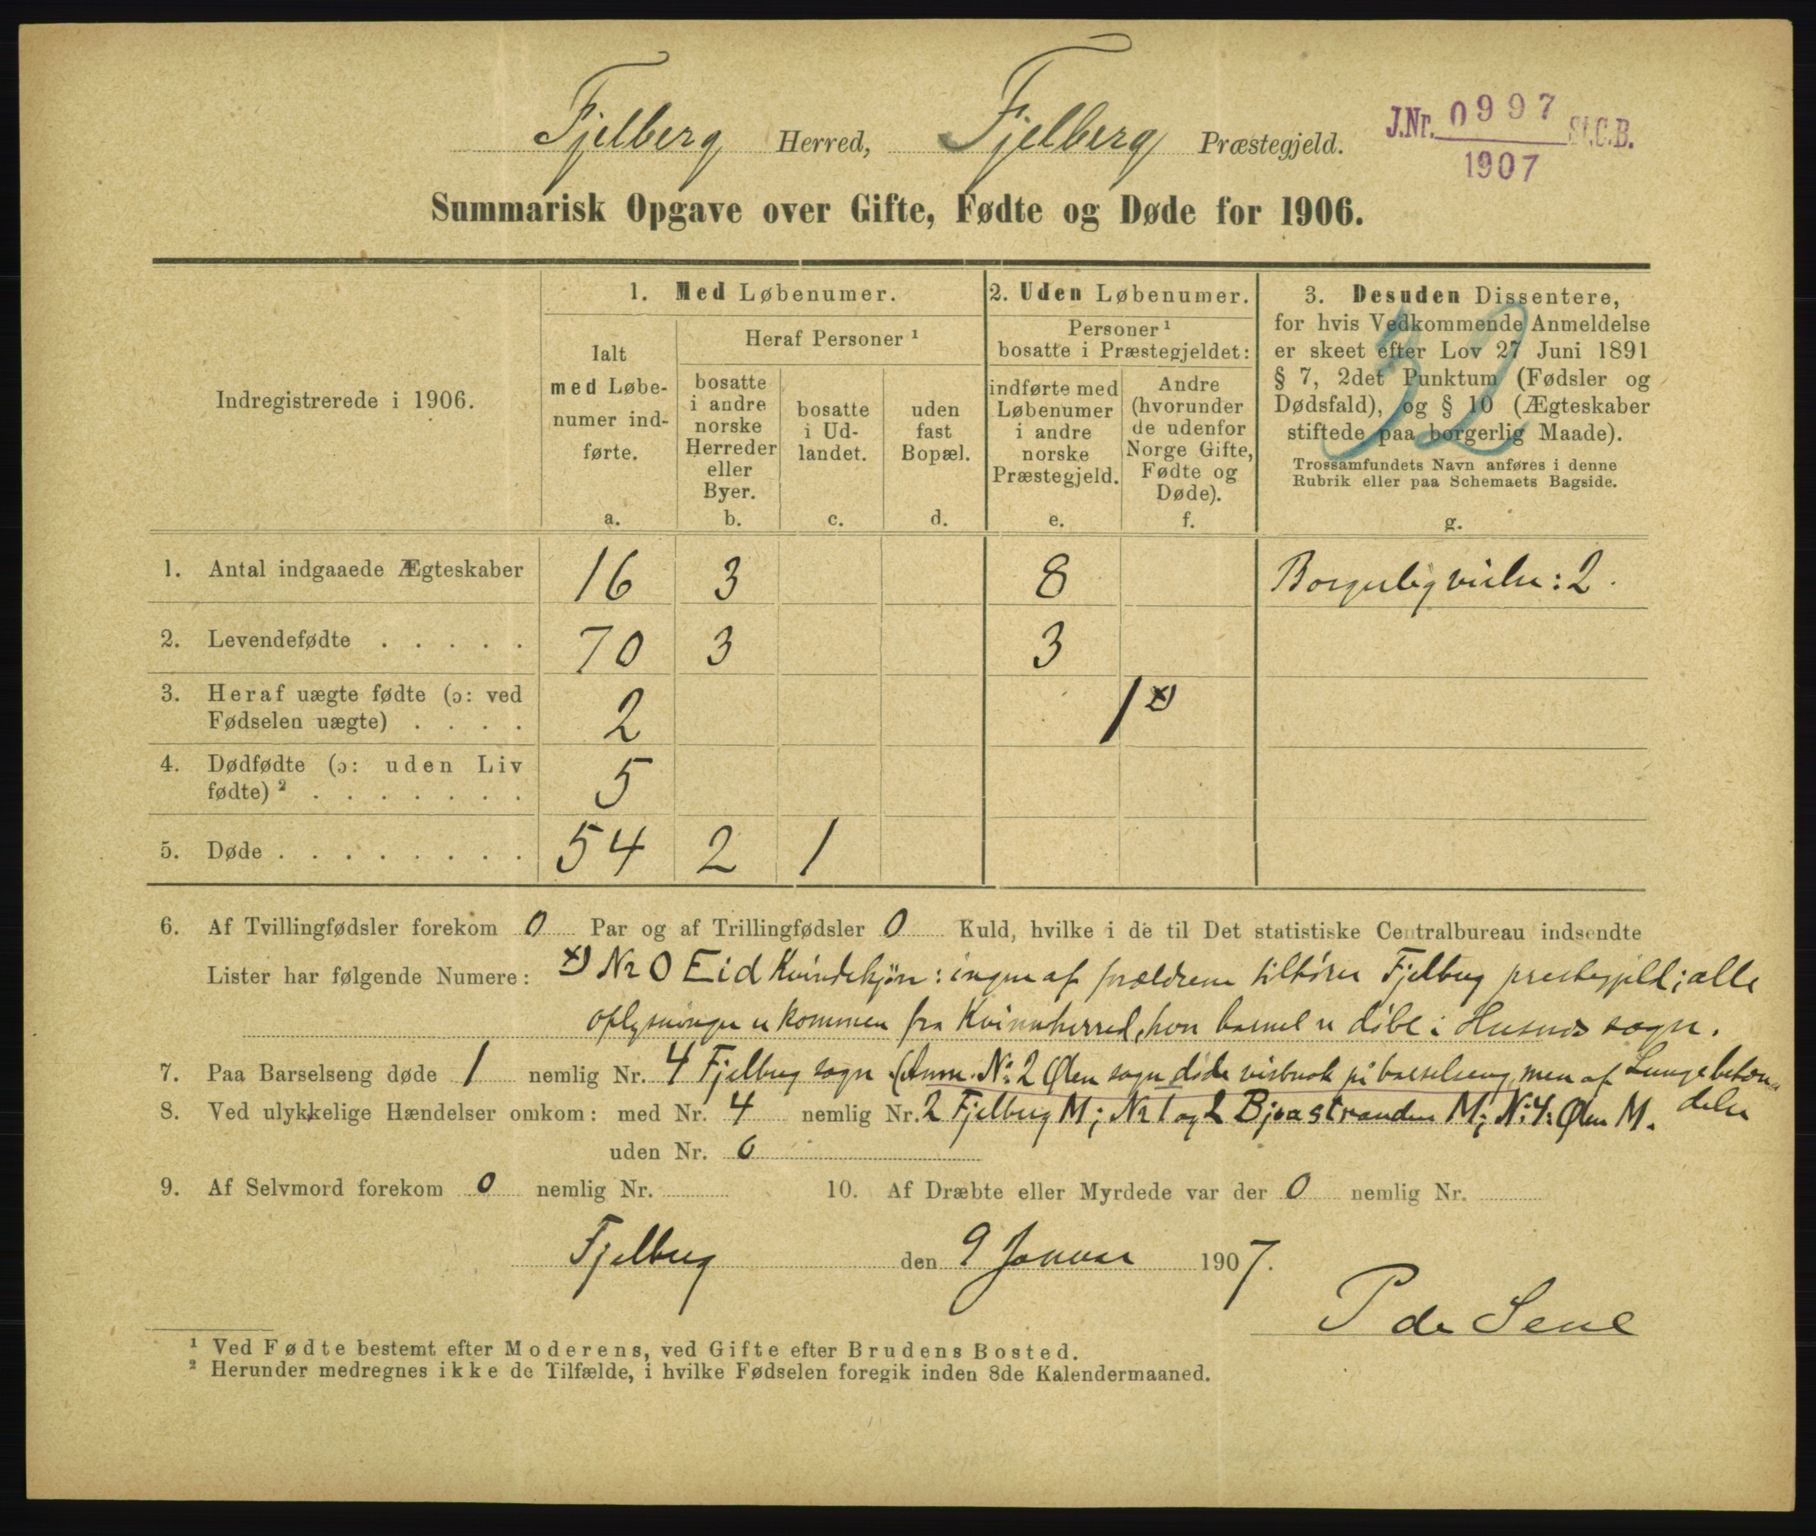 Fjelberg Herred, Fjelberg Præstegjeld.
J.Nr. 0997 St.C.B.
1907
Summarisk Opgave over Gifte, Fødte og Døde for 1906.
Indregistrerede i 1906.
1. Med Løbenumer.
Ialt
med Løbe-
numer ind-
førte.
a.
Heraf Personer ¹
bosatte
i andre
norske
Herreder
eller
Byer.
b.
bosatte
i Ud-
landet.
c.
uden
fast
Bopæl.
d.
2. Uden Løbenumer.
Personer ¹
bosatte i Præstegjeldet:
indførte med
Løbenumer
i andre
norske
Præstegjeld.
e.
Andre
(hvorunder
de udenfor
Norge Gifte,
Fødte og
Døde).
f.
3. Desuden Dissentere,
for hvis Vedkommende Anmeldelse
er skeet efter Lov 27 Juni 1891
§ 7, 2det Punktum (Fødsler og
Dødsfald), og § 10 (Ægteskaber
stiftede paa borgerlig Maade).
Trossamfundets Navn anføres i denne
Rubrik eller paa Schemaets Bagside.
g.
32
1. Antal indgaaede Ægteskaber 16 3 8 Borgerlig vielse: 2.
2. Levendefødte . . . . . 70 3 3
3. Heraf uægte fødte (ɔ: ved
Fødselen uægte) . . . . 2 1 x)
4. Dødfødte (ɔ: uden Liv
fødte) ² . . . . . . . 5
5. Døde . . . . . . . . 54 2 1
6. Af Tvillingfødsler forekom 0 Par og af Trillingfødsler 0 Kuld, hvilke i de til Det statistiske Centralbureau indsendte
Lister har følgende Numere: x) Nr 0 Eid Kvindekjøn: ingen af forældrene tilhører Fjelberg prestegjeld; alle
oplysninger er kommen fra Kvinnherred, hvor barnet er døbt i Husnes sogn.
7. Paa Barselseng døde 1 nemlig Nr. 4 Fjelberg sogn (Anm. Nr 2 Ølen sogn døde visnok på barselseng, men af Lungebeten-
delse
8. Ved ulykkelige Hændelser omkom: med Nr. 4 nemlig Nr. 2 Fjelberg M; Nr 1 og 2 Bjoastranden M; Nr 4: Ølen M.
uden Nr. 0
9. Af Selvmord forekom 0 nemlig Nr. 10. Af Dræbte eller Myrdede var der 0 nemlig Nr.
Fjelberg den 9 Januar 1907.
P de Seue
¹ Ved Fødte bestemt efter Moderens, ved Gifte efter Brudens Bosted.
² Herunder medregnes ikke de Tilfælde, i hvilke Fødselen foregik inden 8de Kalendermaaned.